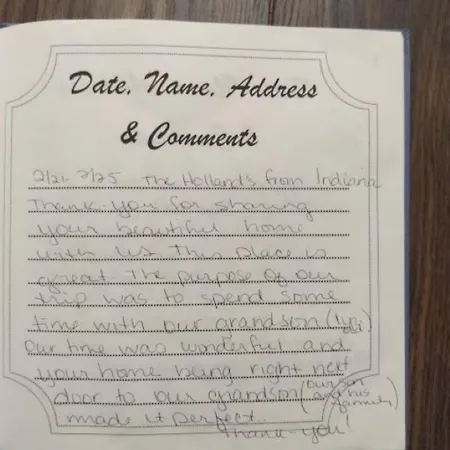 Date, Name, Address
& Comments
2/21-2/25 The Hollands from Indiana
Thank-you for sharing
your beautiful home
with us This place is
great. The purpose of our
trip was to spend some
time with our grandson (1
Our time was wonderful and
your home being right next
door to our grandson (our son
and his
family)
made it perfect.
Thank-you!